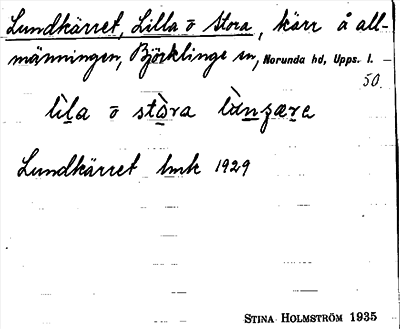 Lundkärret, Lilla o Stora, kärr å all-
männingen, Björklinge sn, Norunda hd, Upps. l.
50.
lìla o stòra lùnʒære
Lundkärret bmk 1929
STINA HOLMSTRÖM 1935